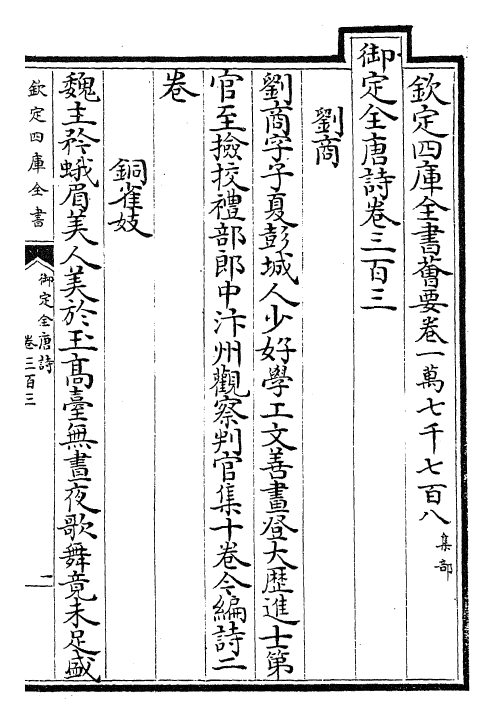 欽定四庫全書薈要卷一萬七千七百八集部
御定全唐詩卷三百三
劉商
劉商字子夏彭城人少好學工文善畫登大歴進士第
官至撿挍禮部郎中汴州觀察判官集十卷今編詩二
卷
銅雀妓
魏主矜蛾眉美人美於玉高臺無晝夜歌舞竟未足盛
欽定四庫全書
御定全唐詩
卷三百三
一